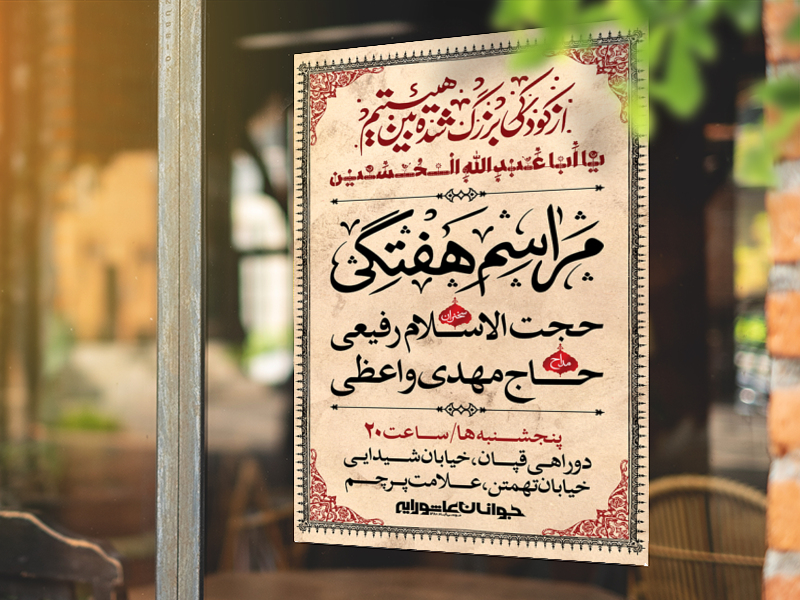 از کودکی بزرگ شده بین هیئتیم
یا أبا عَبدِ اللّٰه الحُسَین
مَراسِم هَفتگی
سخنران
حجت الاسلام رفیعی
مداح
حاج مهدی واعظی
پنجشنبه‌ها/ساعت ۲۰
دوراهی قپان، خیابان شیدایی
خیابان تهمتن، علامت پرچم
جوانان عاشورایه